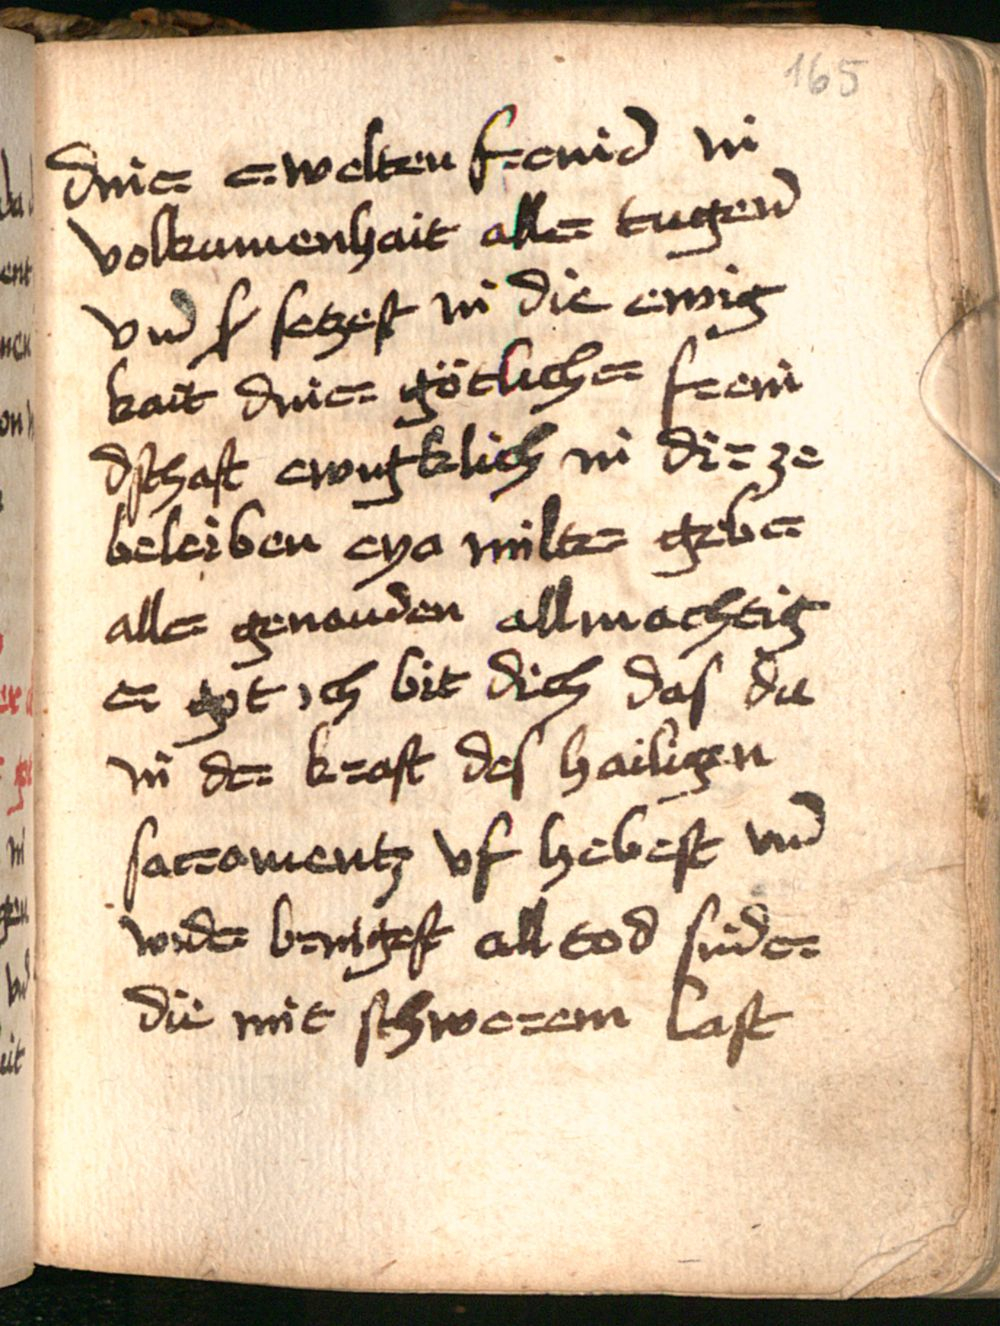 165
diner erwelten freind in
volkumenhait aller tugend
vnd sy setzest in die ewig
kait diner götlicher frein
dschaft ewigklich in dir ze
beleiben eya milter geber
aller genauden allmachtig
er got ich bit dich das du
in der kraft des hailigen
sacramentz vf hebest vnd
wider bringest all tod sinder
die mit schwerem last